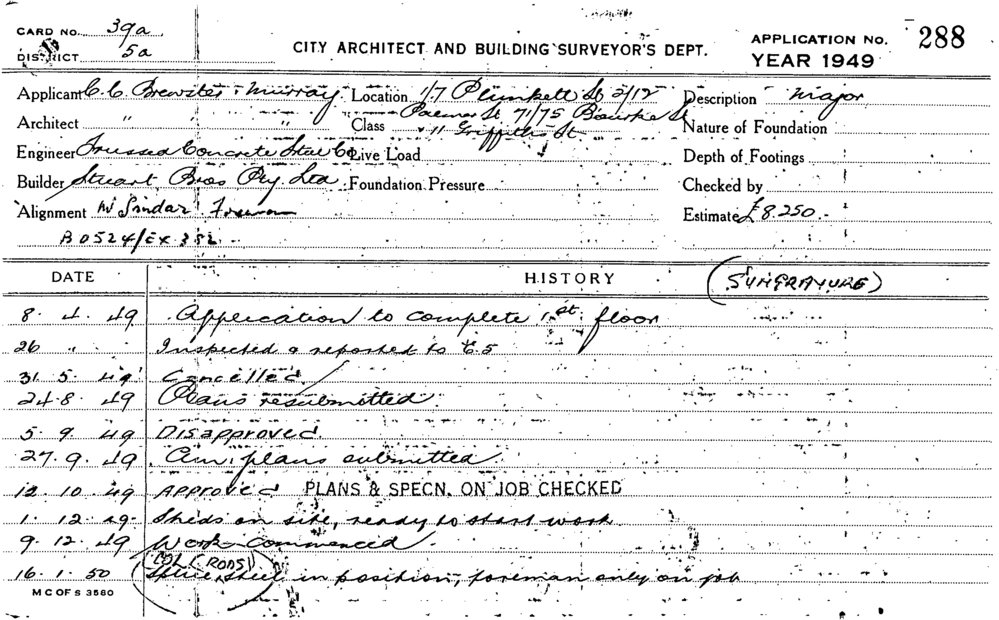 CARD NO. 39a
DISTRICT 5a
CITY ARCHITECT AND BUILDING SURVEYOR'S DEPT.
APPLICATION NO. 288
YEAR 1949
Applicant C.C. Brewster & Murray Location 1/7 Plunkett St, 2/12 Description Major
Palmer St 71/75 Bourke St
Architect " Class " 11 Griffiths St Nature of Foundation
Engineer Trussed Concrete Steel Co Live Load Depth of Footings
Builder Stuart Bros Pty Ltd Foundation Pressure Checked by
Alignment Estimate £8.250.-
BO524/EX 352
DATE HISTORY (SUNGRAVURE)
8. 4. 49 Application to complete 1st. floor
26 " Inspected & reported to C.S
31. 5. 49 Cancelled
24-8. 49 Plans resubmitted
5. 9. 49 Disapproved
27. 9. 49 Am. plans submitted
12. 10. 49 APPROVED PLANS & SPECN. ON JOB CHECKED
1. 12. 49- Sheds on site, ready to start work
9. 12. 49 Work commenced
COL (RODS)
16. 1. 50 Steel in position, foreman only on job
M C OF S 3580